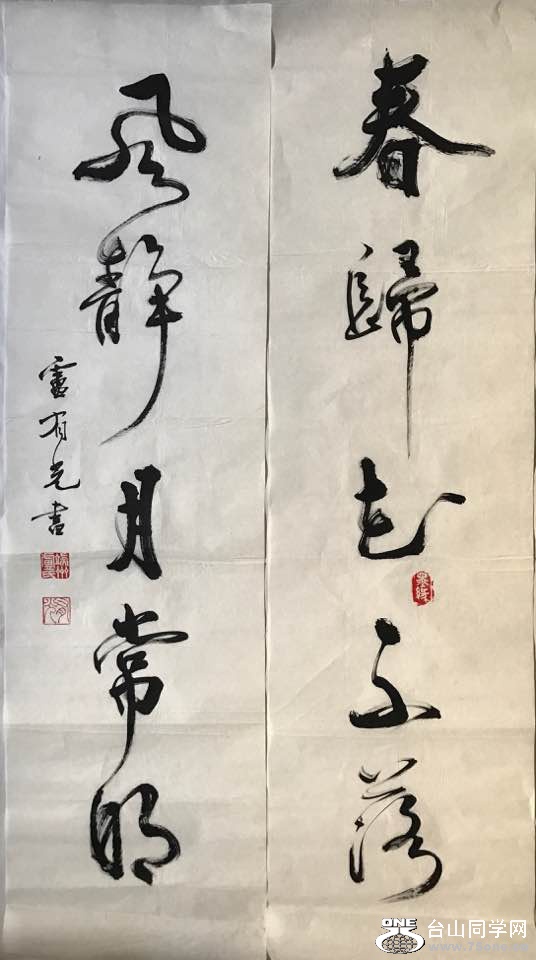 春歸花不落
風静月常明
雷有光書
ONE
台山同学网